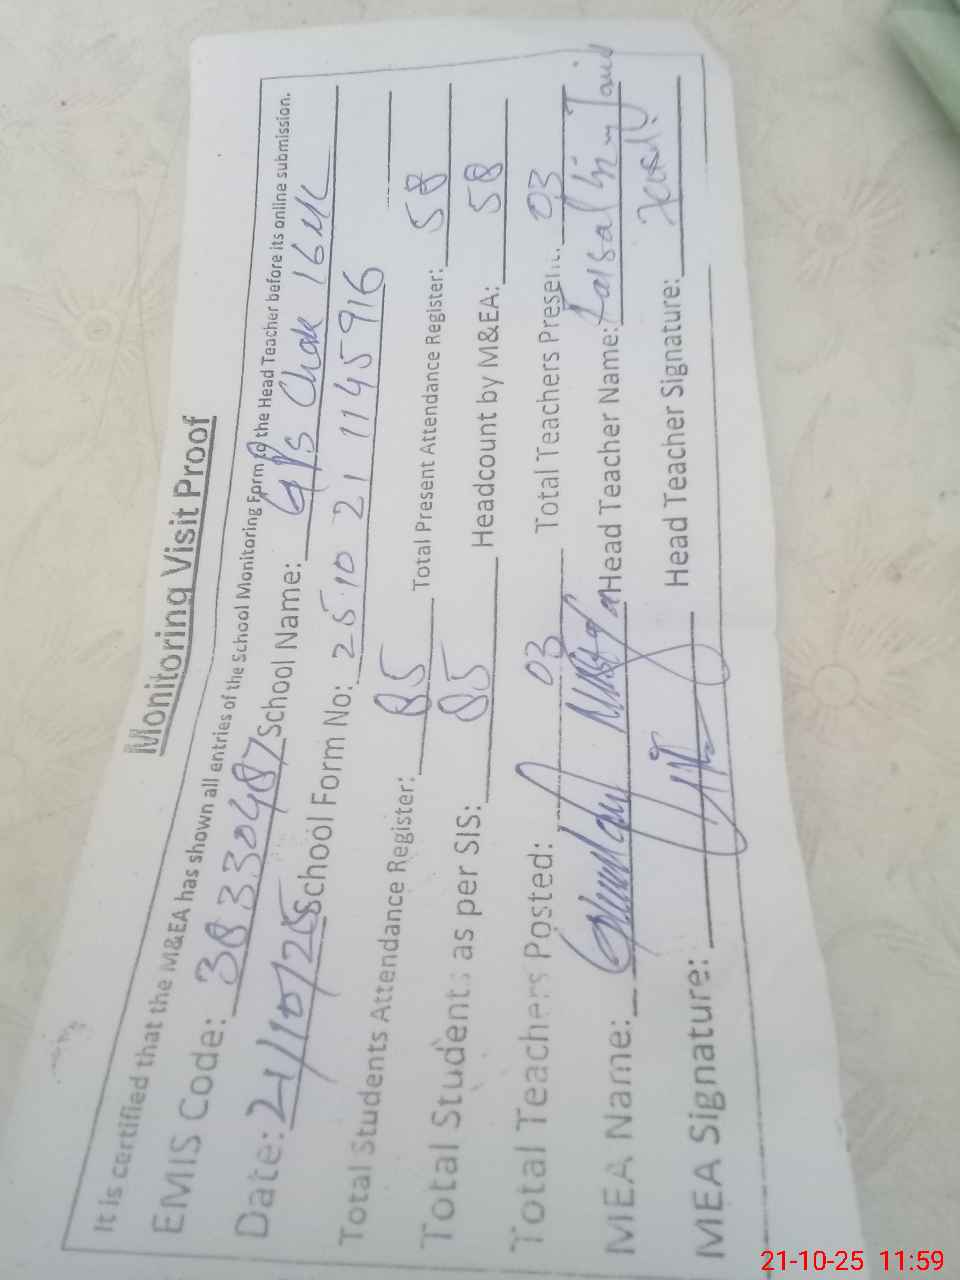 Monitoring Visit Proof
It is certified that the M&EA has shown all entries of the School Monitoring Form to the Head Teacher before its online submission.
EMIS Code: 38330487 School Name: GPS Chak 16 ML
Date: 21/10/25 School Form No: 25 10 21 1145916
Total Students Attendance Register: 85 Total Present Attendance Register: 58
Total Students as per SIS: 85 Headcount by M&EA: 58
Total Teachers Posted: 03 Total Teachers Present: 03
MEA Name: Head Teacher Name:
MEA Signature: Head Teacher Signature:
21-10-25 11:59